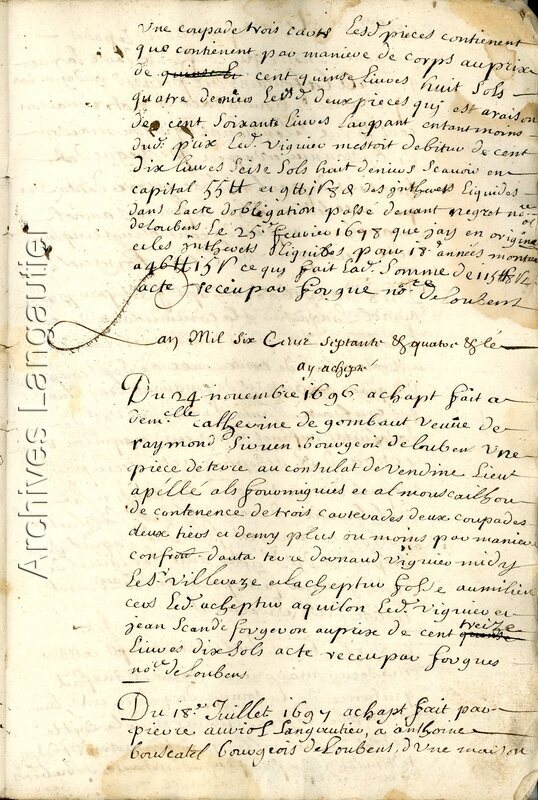 une coupade trois carts Lesd. pieces contienent
que contienent par maniere de corps au prix
de quinse et cent quinse livres huit sols
quatre deniers Lesd. deux pieces qui est a raison
de cent soixante livres Larpant en tant moins
dud. prix Led. viguier mestoit debitur de cent
dix livres seise sols huit deniers scavoir en
capital 55 et des jntherets liquides
dans Lacte dobligation passé devant negrat nore
de Loubens Le 25e fevrier 1678 que jays en origine
et les jntherets liquides pour 18 années montent
a 46 15 ce qui fait Lad. somme de 115
acte receu par forgue nore de Loubens
an Mil six Cens septante & quatre & lé
ay achepté
Du 24 novembre 1696 achapt fait a
demelle Catherine de gombaut veuve de
raymond bourgeois de Louben une
piece de terre au consulat de vendine Lieut
apéllé als fourniguiés et al mouscailhou
de contenence de trois cartevades deux coupades
deux tiers et demy plus ou moins par maniere
confron dauta terre darnaud viguier midy
Le Sr villevaze et Lacheptur fosse au milieu
cers Led. acheptur aquilon Led. viguier et
jean Scande forgeron au prix de cent treize
livres dix sols acte receu par forgues
nore de Loubens
Du 18e Juillet 1697 achapt fait par
pierre auriol Langautier, a anthoine
bouscatel bourgeois de Loubens, dune maison
Archives Langautier